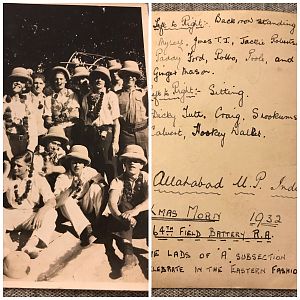 Left to Right:- Back row standing
Myself, Jones T.J, Jackie Roberts
Paddy Ford, Pobbo, Poole, and
Ginger Mason.
Left to Right:- Sitting.
Dicky Tutt, Craig, Snookums
Calvert, Hookey Walker.
Allahabad U.P. Ind
XMAS MORN 1932
64TH FIELD BATTERY R.A.
THE LADS OF "A" SUBSECTION
CELEBRATE IN THE EASTERN FASHION